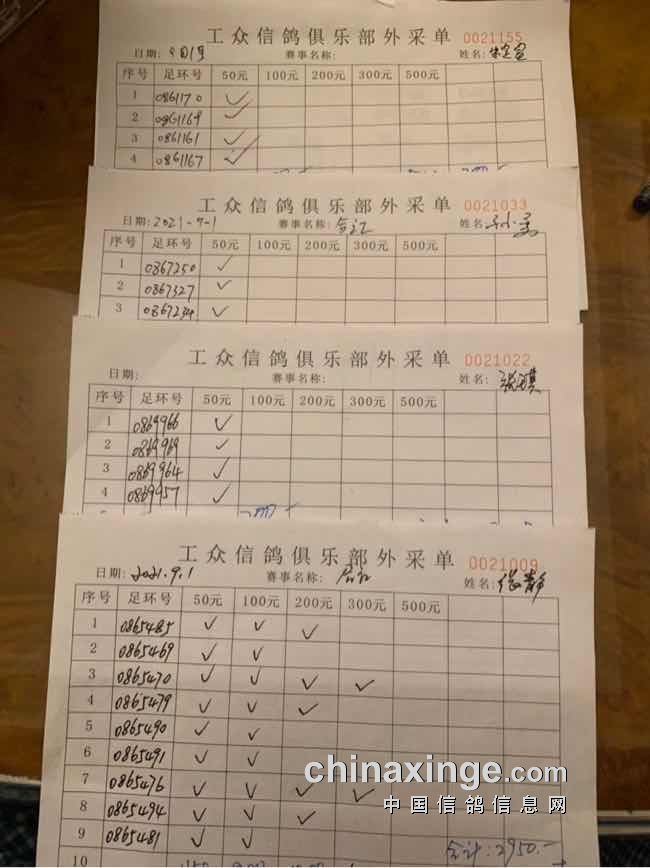 工众信鸽俱乐部外采单 0021155
日期: 9月1号 赛事名称: 姓名:
序号 足环号 50元 100元 200元 300元 500元
1 0861170 ✓
2 0861169 ✓
3 0861161 ✓
4 0861167 ✓
工众信鸽俱乐部外采单 0021033
日期: 2021-9-1 赛事名称: 合江 姓名:
序号 足环号 50元 100元 200元 300元 500元
1 0867250 ✓
2 0867327 ✓
3 0867234 ✓
工众信鸽俱乐部外采单 0021022
日期: 赛事名称: 姓名:
序号 足环号 50元 100元 200元 300元 500元
1 0869966 ✓
2 0869969 ✓
3 0869964 ✓
4 0869957 ✓
工众信鸽俱乐部外采单 0021009
日期: 2021.9.1 赛事名称: 合江 姓名:
序号 足环号 50元 100元 200元 300元 500元
1 0865485 ✓ ✓ ✓
2 0865469 ✓ ✓
3 0865470 ✓ ✓ ✓ ✓
4 0865479 ✓ ✓ ✓
5 0865490 ✓ ✓
6 0865491 ✓ ✓
7 0865476 ✓ ✓ ✓ ✓
8 0865494 ✓ ✓ ✓
9 0865481 ✓ ✓
合计:2950.-
10
chinaxinge.com
中国信鸽信息网